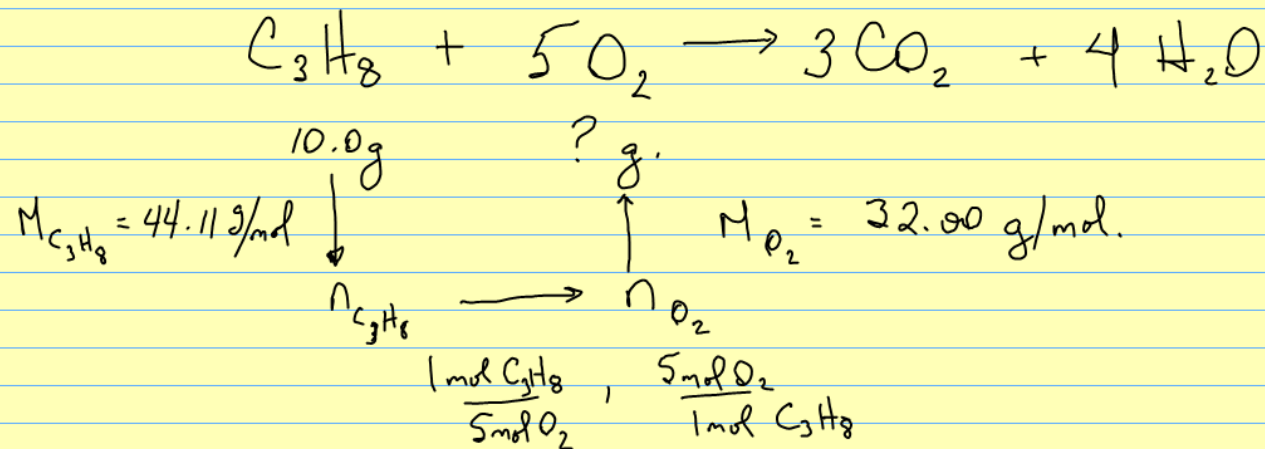 C₃H₈ + 5 O₂ → 3 CO₂ + 4 H₂O
10.0g ? g.
M_C₃H₈ = 44.11 g/mol ↓ ↑ M_O₂ = 32.00 g/mol.
n_C₃H₈ → n_O₂
1 mol C₃H₈ / 5 mol O₂ , 5 mol O₂ / 1 mol C₃H₈